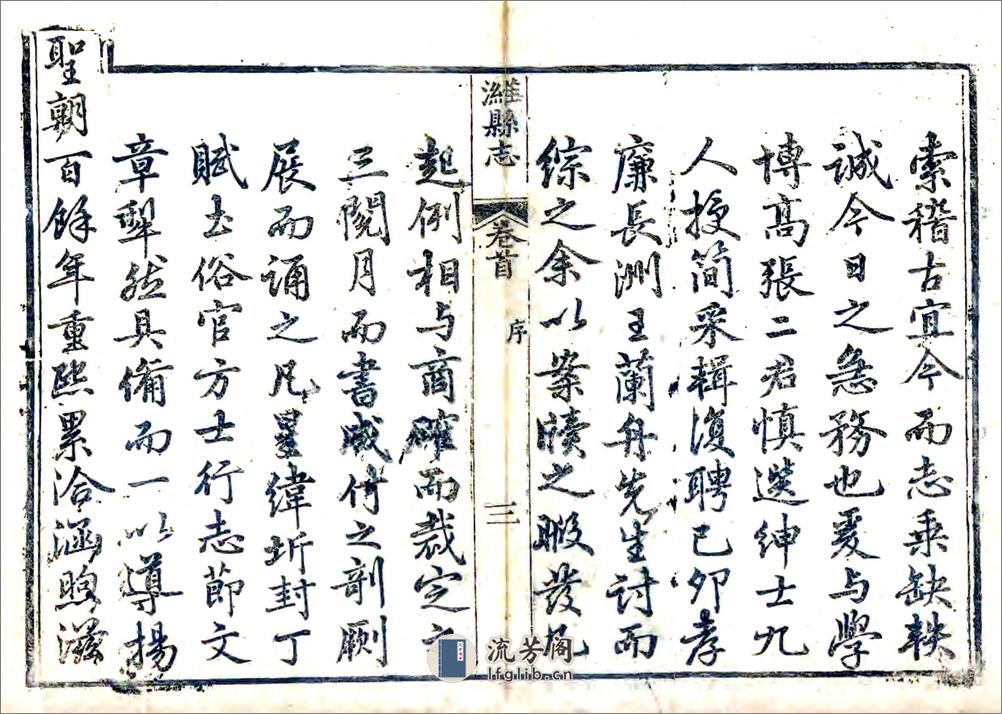 索稽古宜今而志乘缺軼
誠今日之急務也爰与學
博高張二君慎選紳士九
人授簡采輯復聘己卯孝
廉長洲王蘭舟先生討而
綜之余以案牘之暇發凡
濰縣志 卷首 序 三
起例相与商確而裁定之
三閱月而書成付之剞劂
展而誦之凡星緯圻封丁
賦土俗官方士行志節文
章犂然具備而一以導揚
聖朝百餘年重熙累洽涵煦滋
流芳阁
lfglib.cn